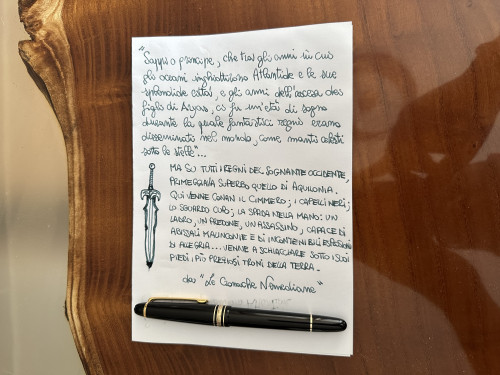 "Sappi o principe, che tra gli anni in cui
gli oceani inghiottirono Atlantide e le sue
splendide città, e gli anni dell'ascesa dei
figli di Aryas, ci fu un'età di sogno
durante la quale fantastici regni erano
disseminati nel mondo, come manti celesti
sotto le stelle"...
MA SU TUTTI I REGNI DEL SOGNANTE OCCIDENTE,
PRIMEGGIAVA SUPERBO QUELLO DI AQUILONIA.
QUI VENNE CONAN IL CIMMERO; I CAPELLI NERI;
LO SGUARDO CUPO; LA SPADA NELLA MANO: UN
LADRO, UN PREDONE, UN ASSASSINO, CAPACE DI
ABISSALI MALINCONIE E DI INCONTENIBILI ESPLOSIONI
DI ALLEGRIA... VENNE A SCHIACCIARE SOTTO I SUOI
PIEDI I PIÙ PREZIOSI TRONI DELLA TERRA.
da "Le Cronache Nemediane"